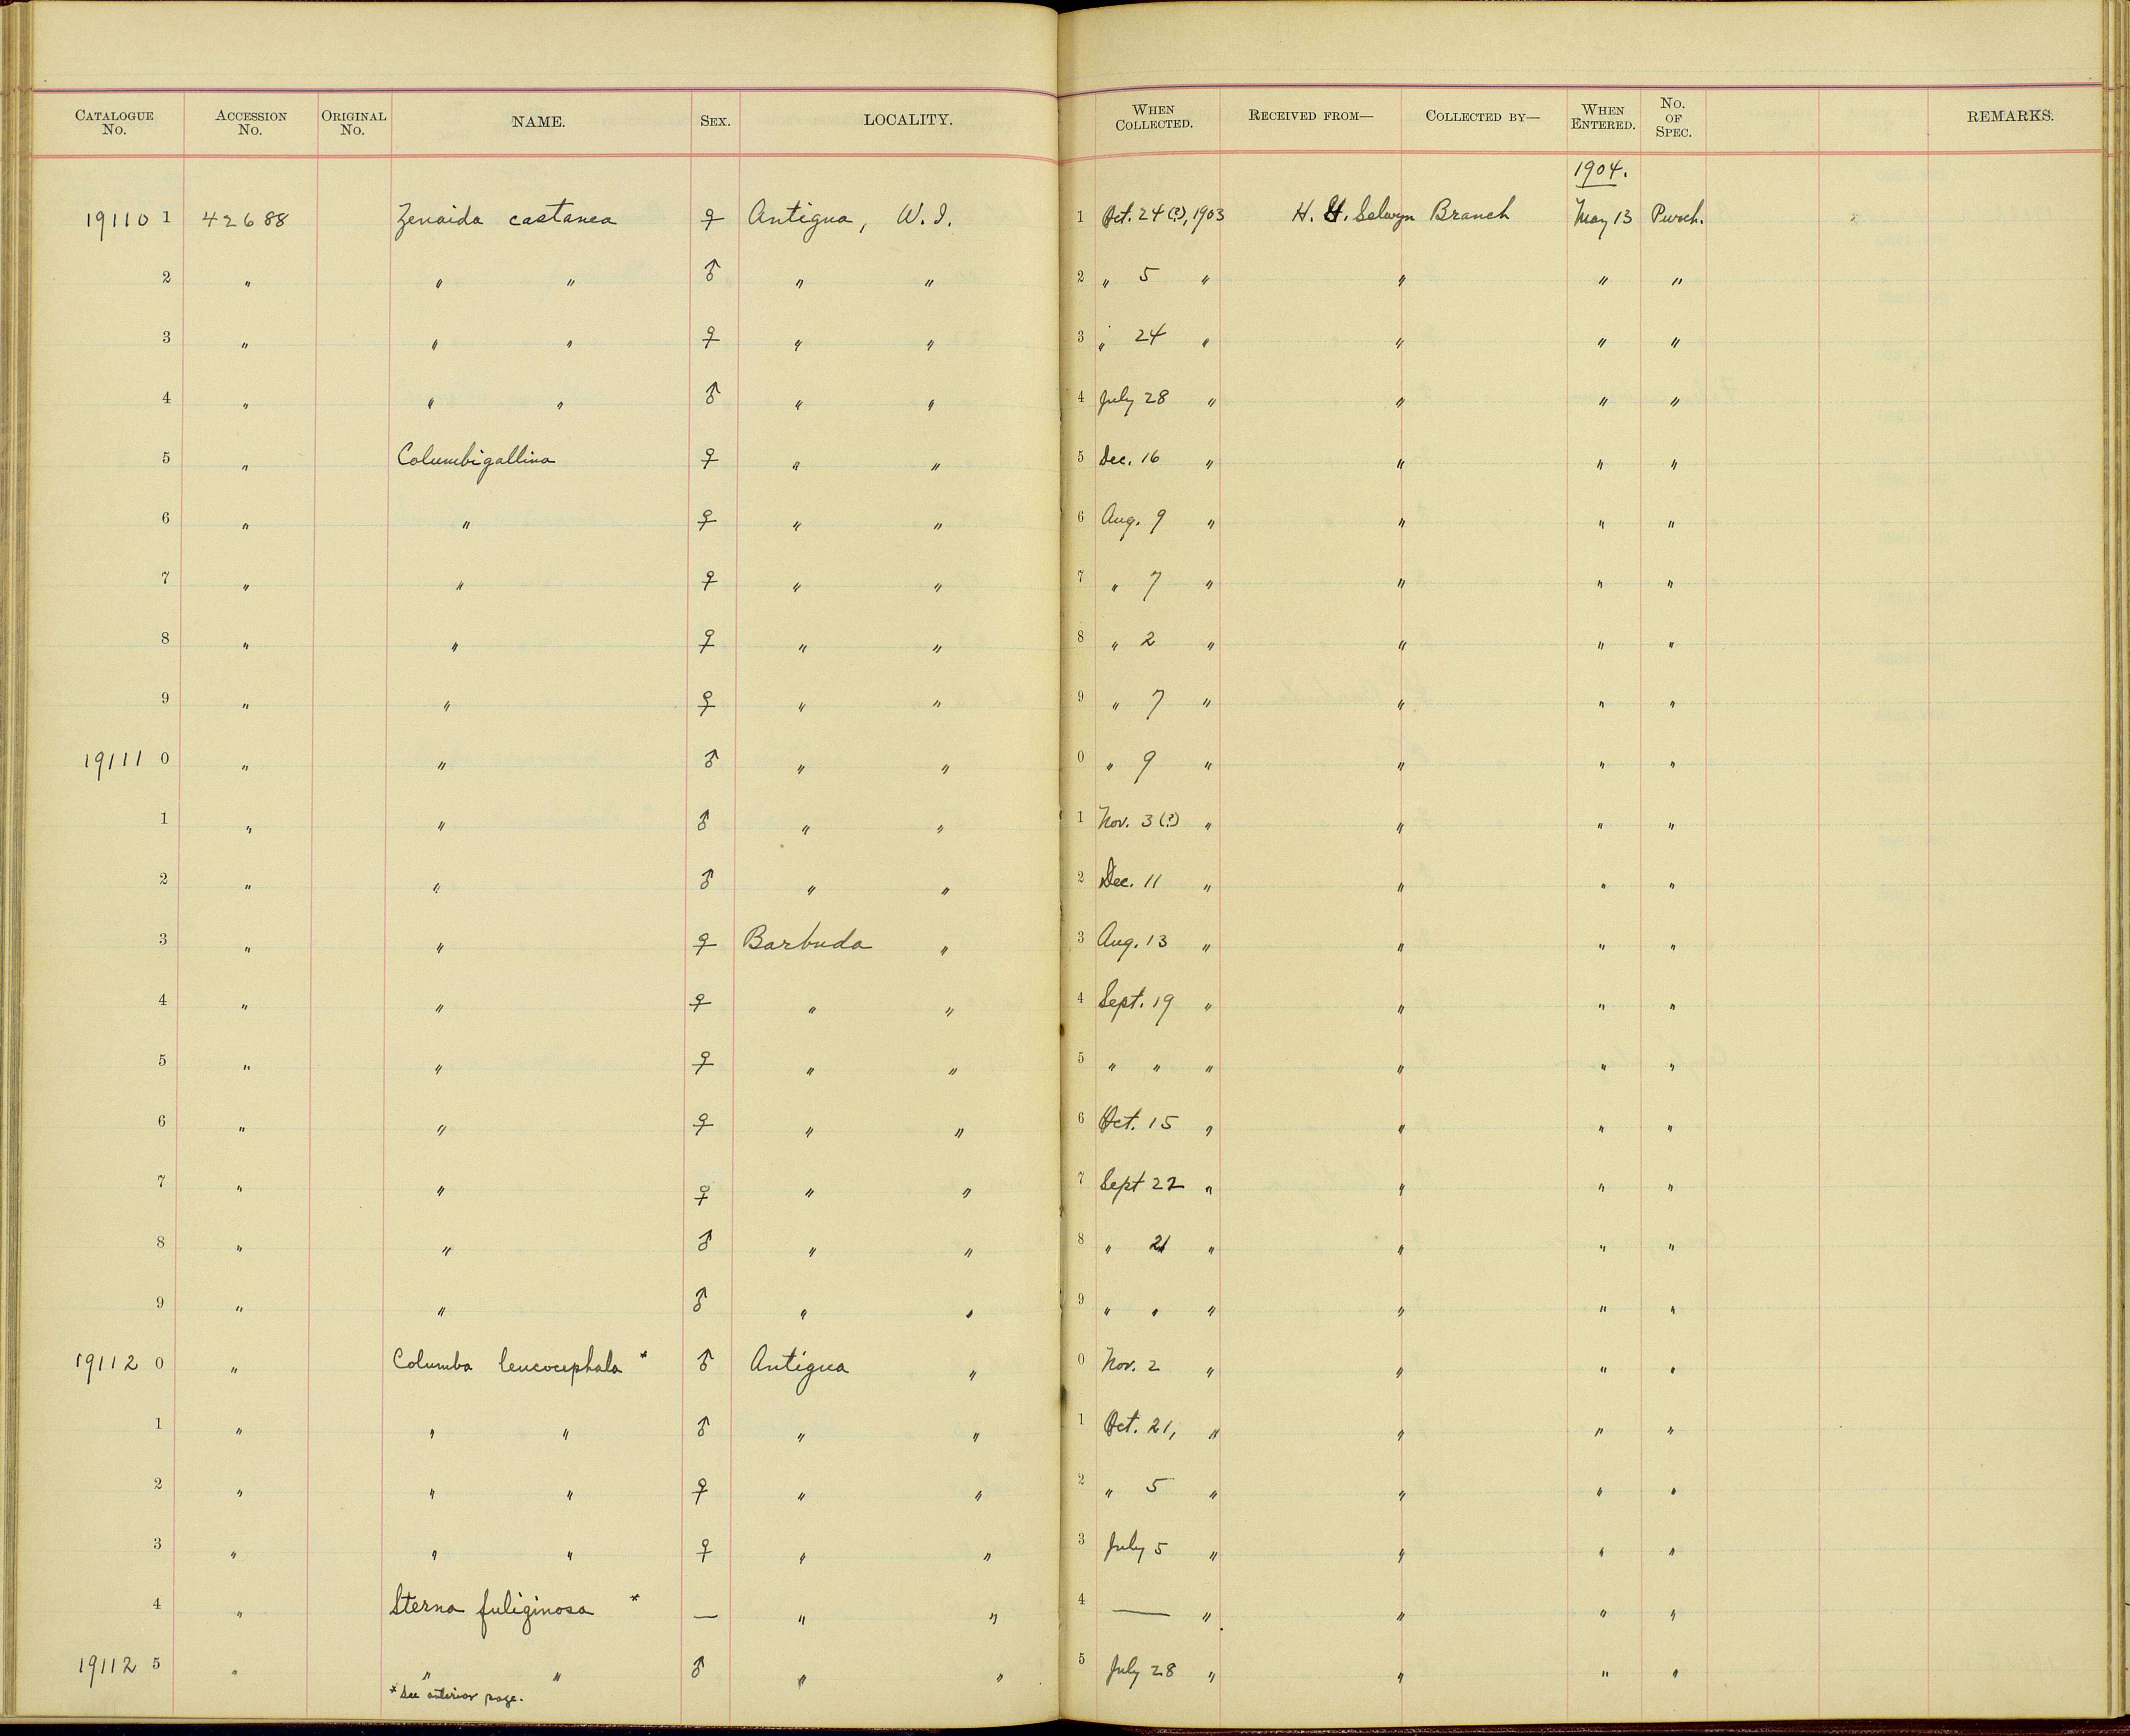 CATALOGUE No. ACCESSION No. ORIGINAL No. NAME. SEX. LOCALITY. WHEN COLLECTED. RECEIVED FROM— COLLECTED BY— WHEN ENTERED. No. OF SPEC. REMARKS.
1904.
19110 1 42688 Zenaida castanea ♀ Antigua, W. I. 1 Oct. 24(?), 1903 H. G. Selwyn Branch May 13 Purch.
2 " " " ♂ " " 2 " 5 " " " "
3 " " " ♀ " " 3 " 24 " " " "
4 " " " ♂ " " 4 July 28 " " " "
5 " Columbigallina ♀ " " 5 Dec. 16 " " " "
6 " " ♀ " " 6 Aug. 9 " " " "
7 " " ♀ " " 7 " 7 " " " "
8 " " ♀ " " 8 " 2 " " " "
9 " " ♀ " " 9 " 7 " " " "
19111 0 " " ♂ " " 0 " 9 " " " "
1 " " ♂ " " 1 Nov. 3(?) " " " "
2 " " ♂ " " 2 Dec. 11 " " " "
3 " " ♀ Barbuda " 3 Aug. 13 " " " "
4 " " ♀ " " 4 Sept. 19 " " " "
5 " " ♀ " " 5 " " " " " "
6 " " ♀ " " 6 Oct. 15 " " " "
7 " " ♀ " " 7 Sept 22 " " " "
8 " " ♂ " " 8 " 21 " " " "
9 " " ♂ " " 9 " " " " " "
19112 0 " Columba leucocephala * ♂ Antigua " 0 Nov. 2 " " " "
1 " " " ♂ " " 1 Oct. 21, " " " "
2 " " " ♀ " " 2 " 5 " " " "
3 " " " ♀ " " 3 July 5 " " " "
4 " Sterna fuliginosa * — " " 4 — " " " "
19112 5 " " " ♂ " " 5 July 28 " " " "
* See anterior page.